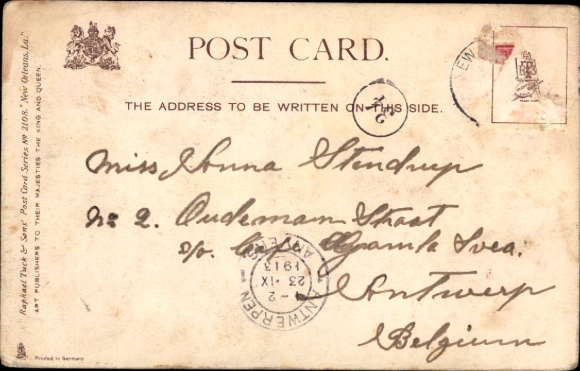 POST CARD.
THE ADDRESS TO BE WRITTEN ON THIS SIDE.
Raphael Tuck & Sons' Post Card Series Nº 2108. "New Orleans, La."
ART PUBLISHERS TO THEIR MAJESTIES THE KING AND QUEEN.
EW
G
Miss Anna Stendrup
No 2. Oudeman Straat
Svea.
Antwerp
Belgium
ANTWERPEN 1
1-2
23 IX
1913
ANVERS
TRADE MARK
Printed in Germany